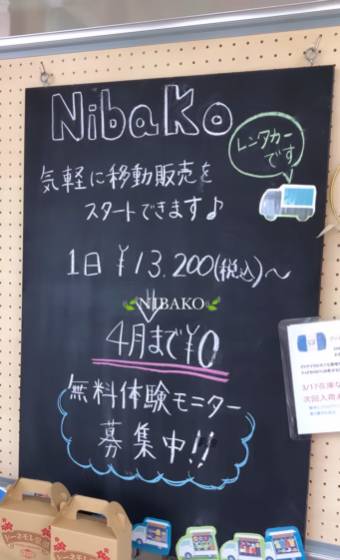 Nibako
レンタカー
です
気軽に移動販売を
スタートできます♪
1日 ¥13,200(税込)~
NIBAKO
4月まで¥0
無料体験モニター
募集中!!
3/17在庫
次回入荷